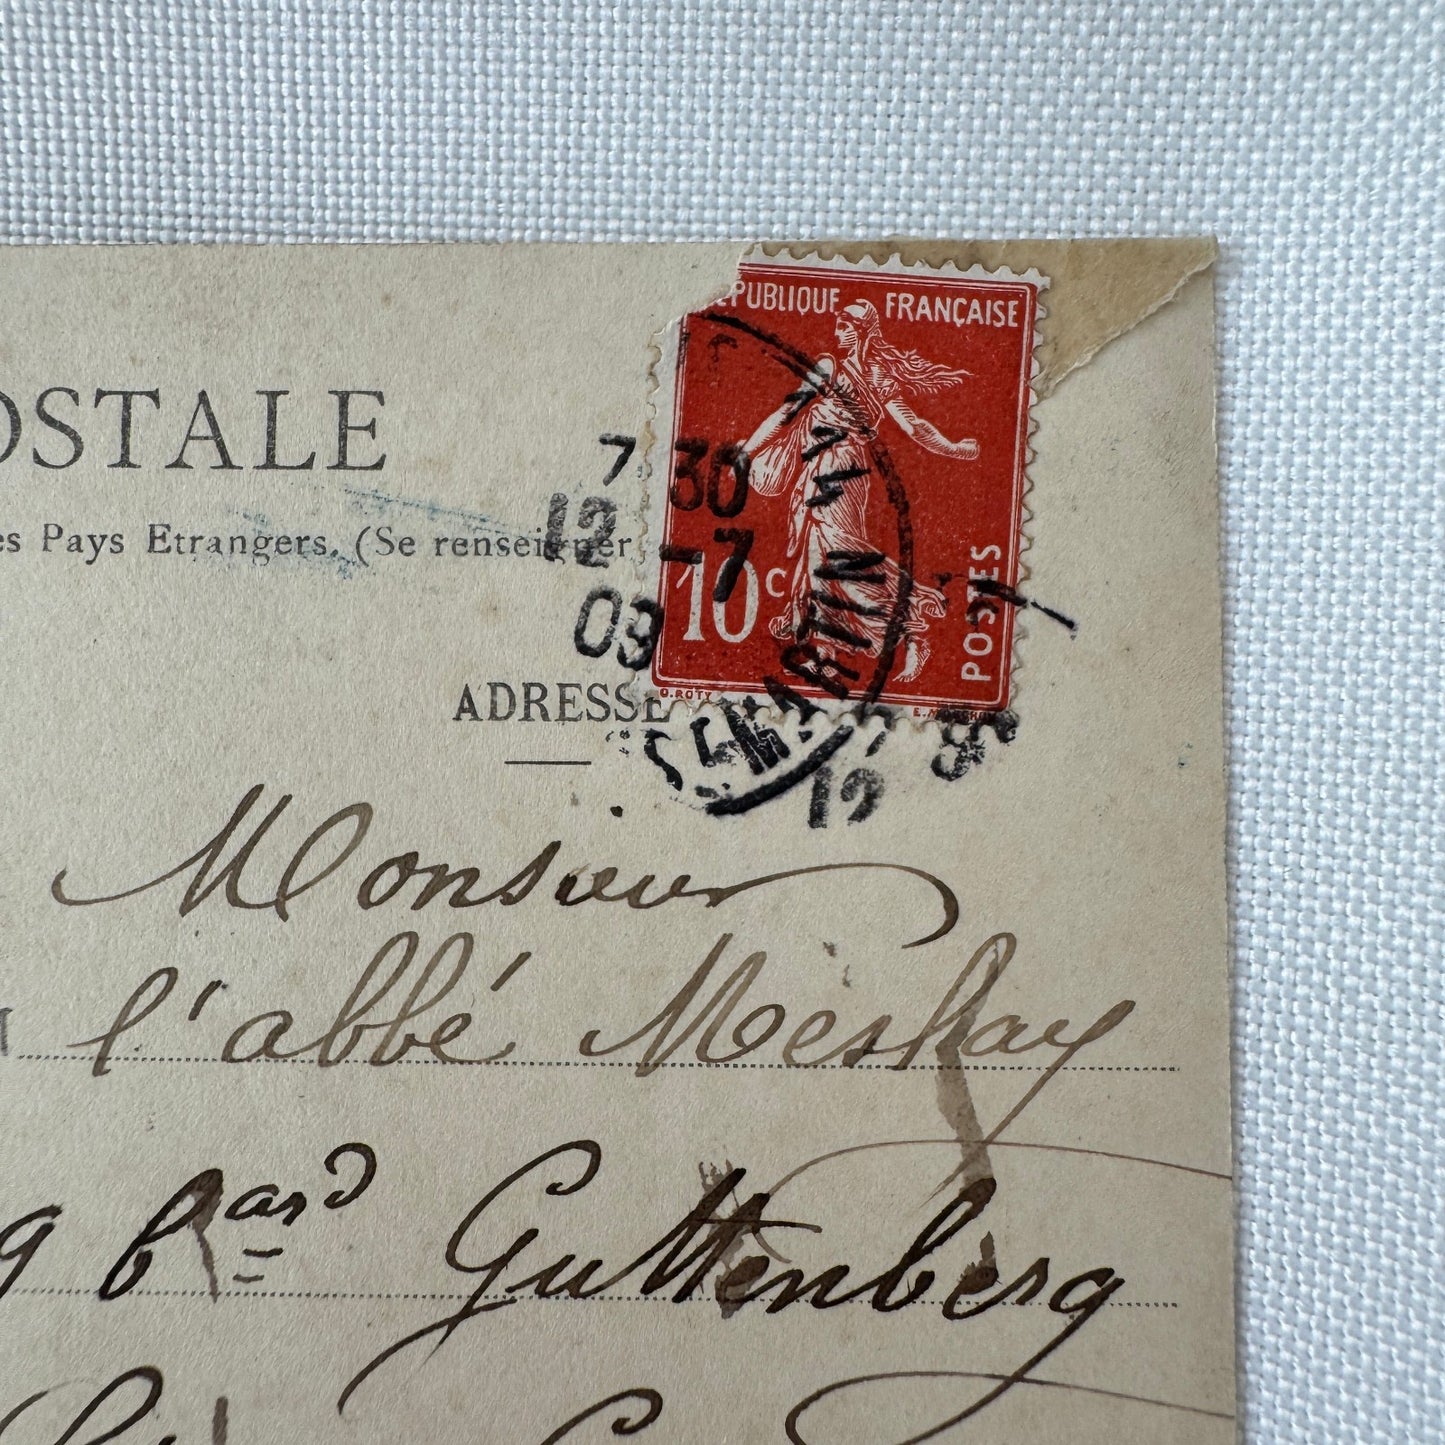 RÉPUBLIQUE FRANÇAISE
OSTALE
7 30
12 -7
09
10c
POSTES
es Pays Etrangers. (Se renseigner
MARTIN
O. ROTY
ADRESSE
12
Monsieur
l'abbé Meslay
9 bard Guttenberg